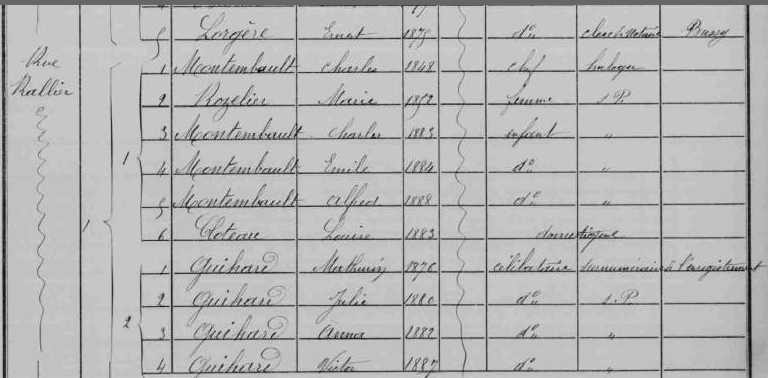 5 Lorgère Ernest 1875 d° clerc de Notaire
Rue 1 Montembault Charles 1848 chef horloger
Rallier 2 Rozelier Marie 1852 femme s.P.
3 Montembault Charles 1883 enfant "
1 4 Montembault Emile 1884 d° "
5 Montembault Alfred 1888 d° "
1 6 Cloteau Louise 1883 domestique
1 Guihard Mathurin 1876 célibataire surnuméraire à l'enregistrement
2 Guihard Julie 1880 d° s.P.
2 3 Guihard Anna 1882 d° "
4 Guihard Victor 1887 d° "